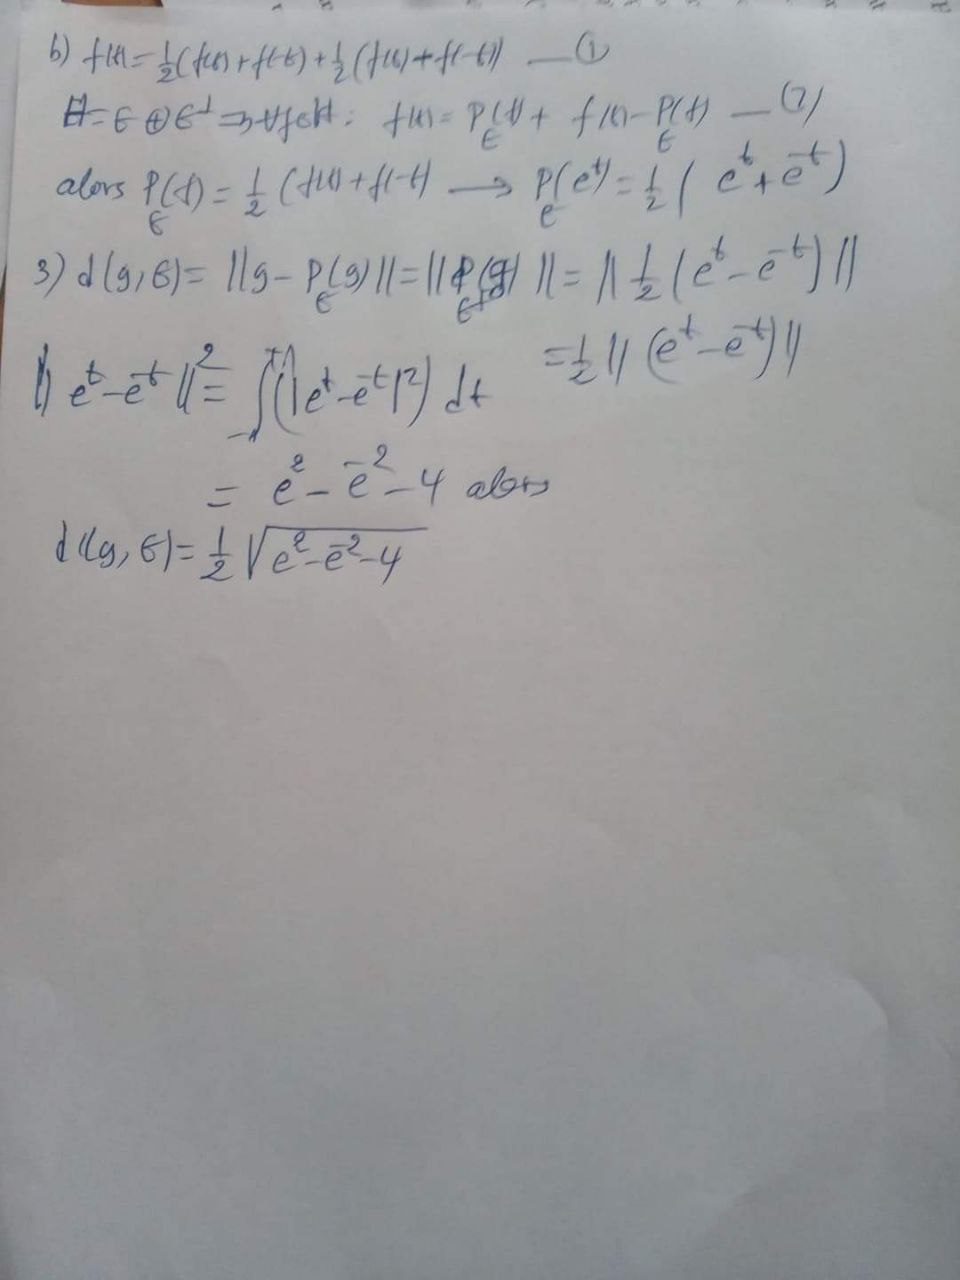 b) f(t) = 1/2 (f(t) + f(-t) + 1/2 (f(t) + f(-t)) — (1)
H = E ⊕ E^⊥ ⇒ ∀f∈H : f(t) = P_E(f) + f(t) - P_E(f) — (2)
alors P_E(f) = 1/2 (f(t) + f(-t) → P_E(e^t) = 1/2 (e^t + e^-t)
3) d(g, E) = ||g - P_E(g)|| = ||P_E^⊥(g)|| = ||1/2 (e^t - e^-t)||
= 1/2 ||(e^t - e^-t)||
||e^t - e^-t||^2 = ∫_-1^1 (|e^t - e^-t|^2) dt
= e^2 - e^-2 - 4 alors
d(g, E) = 1/2 √(e^2 - e^-2 - 4)